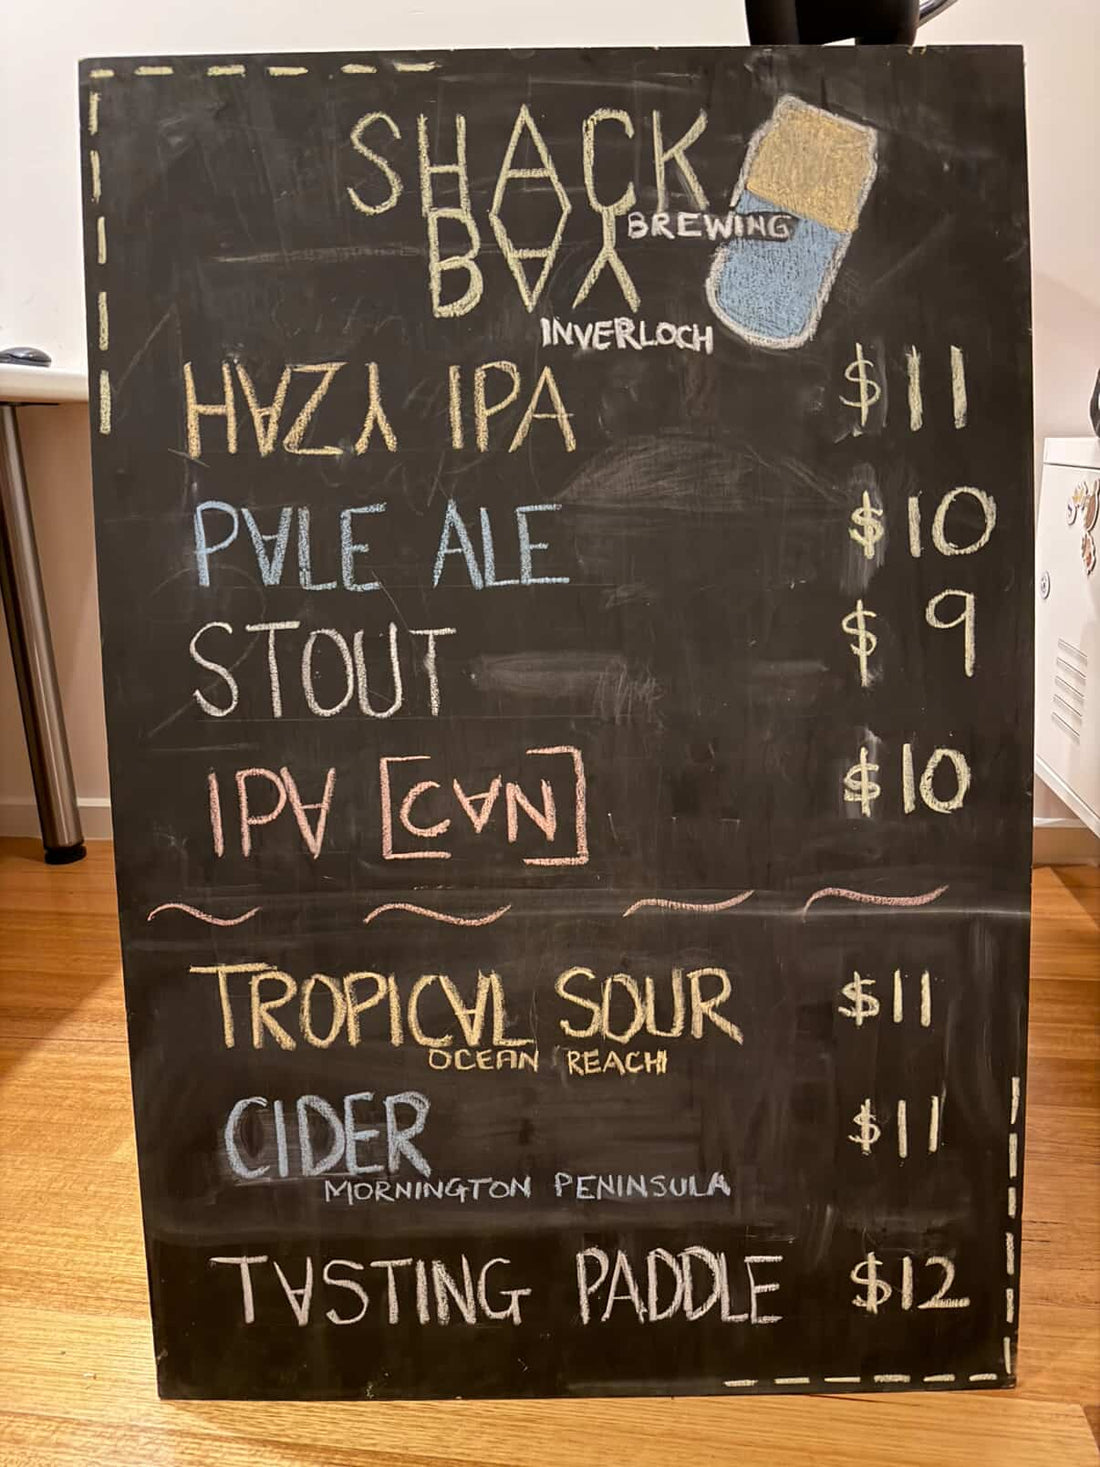 SHACK
BAY
BREWING
INVERLOCH
HAZY IPA $11
PALE ALE $10
STOUT $9
IPA [CAN] $10
TROPICAL SOUR $11
OCEAN REACH
CIDER $11
MORNINGTON PENINSULA
TASTING PADDLE $12